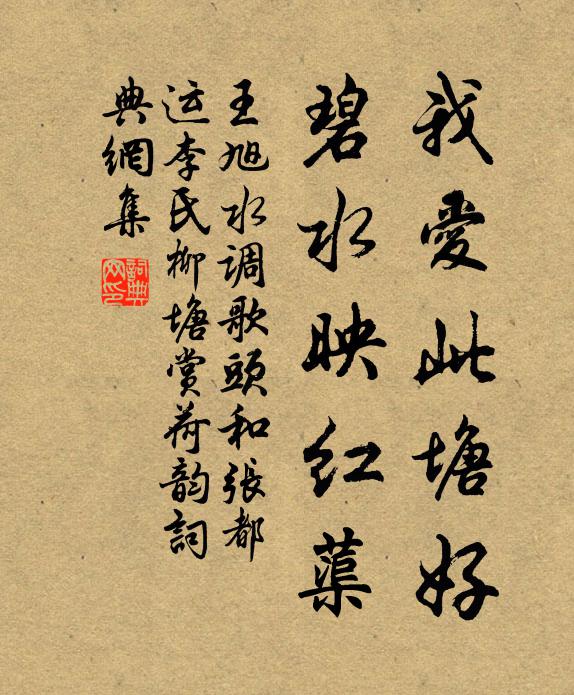 我愛此塘好
碧水映红蕖
王旭水调歌頭和張都
运李氏柳塘賞荷韵詞
典網集
詞典
网印